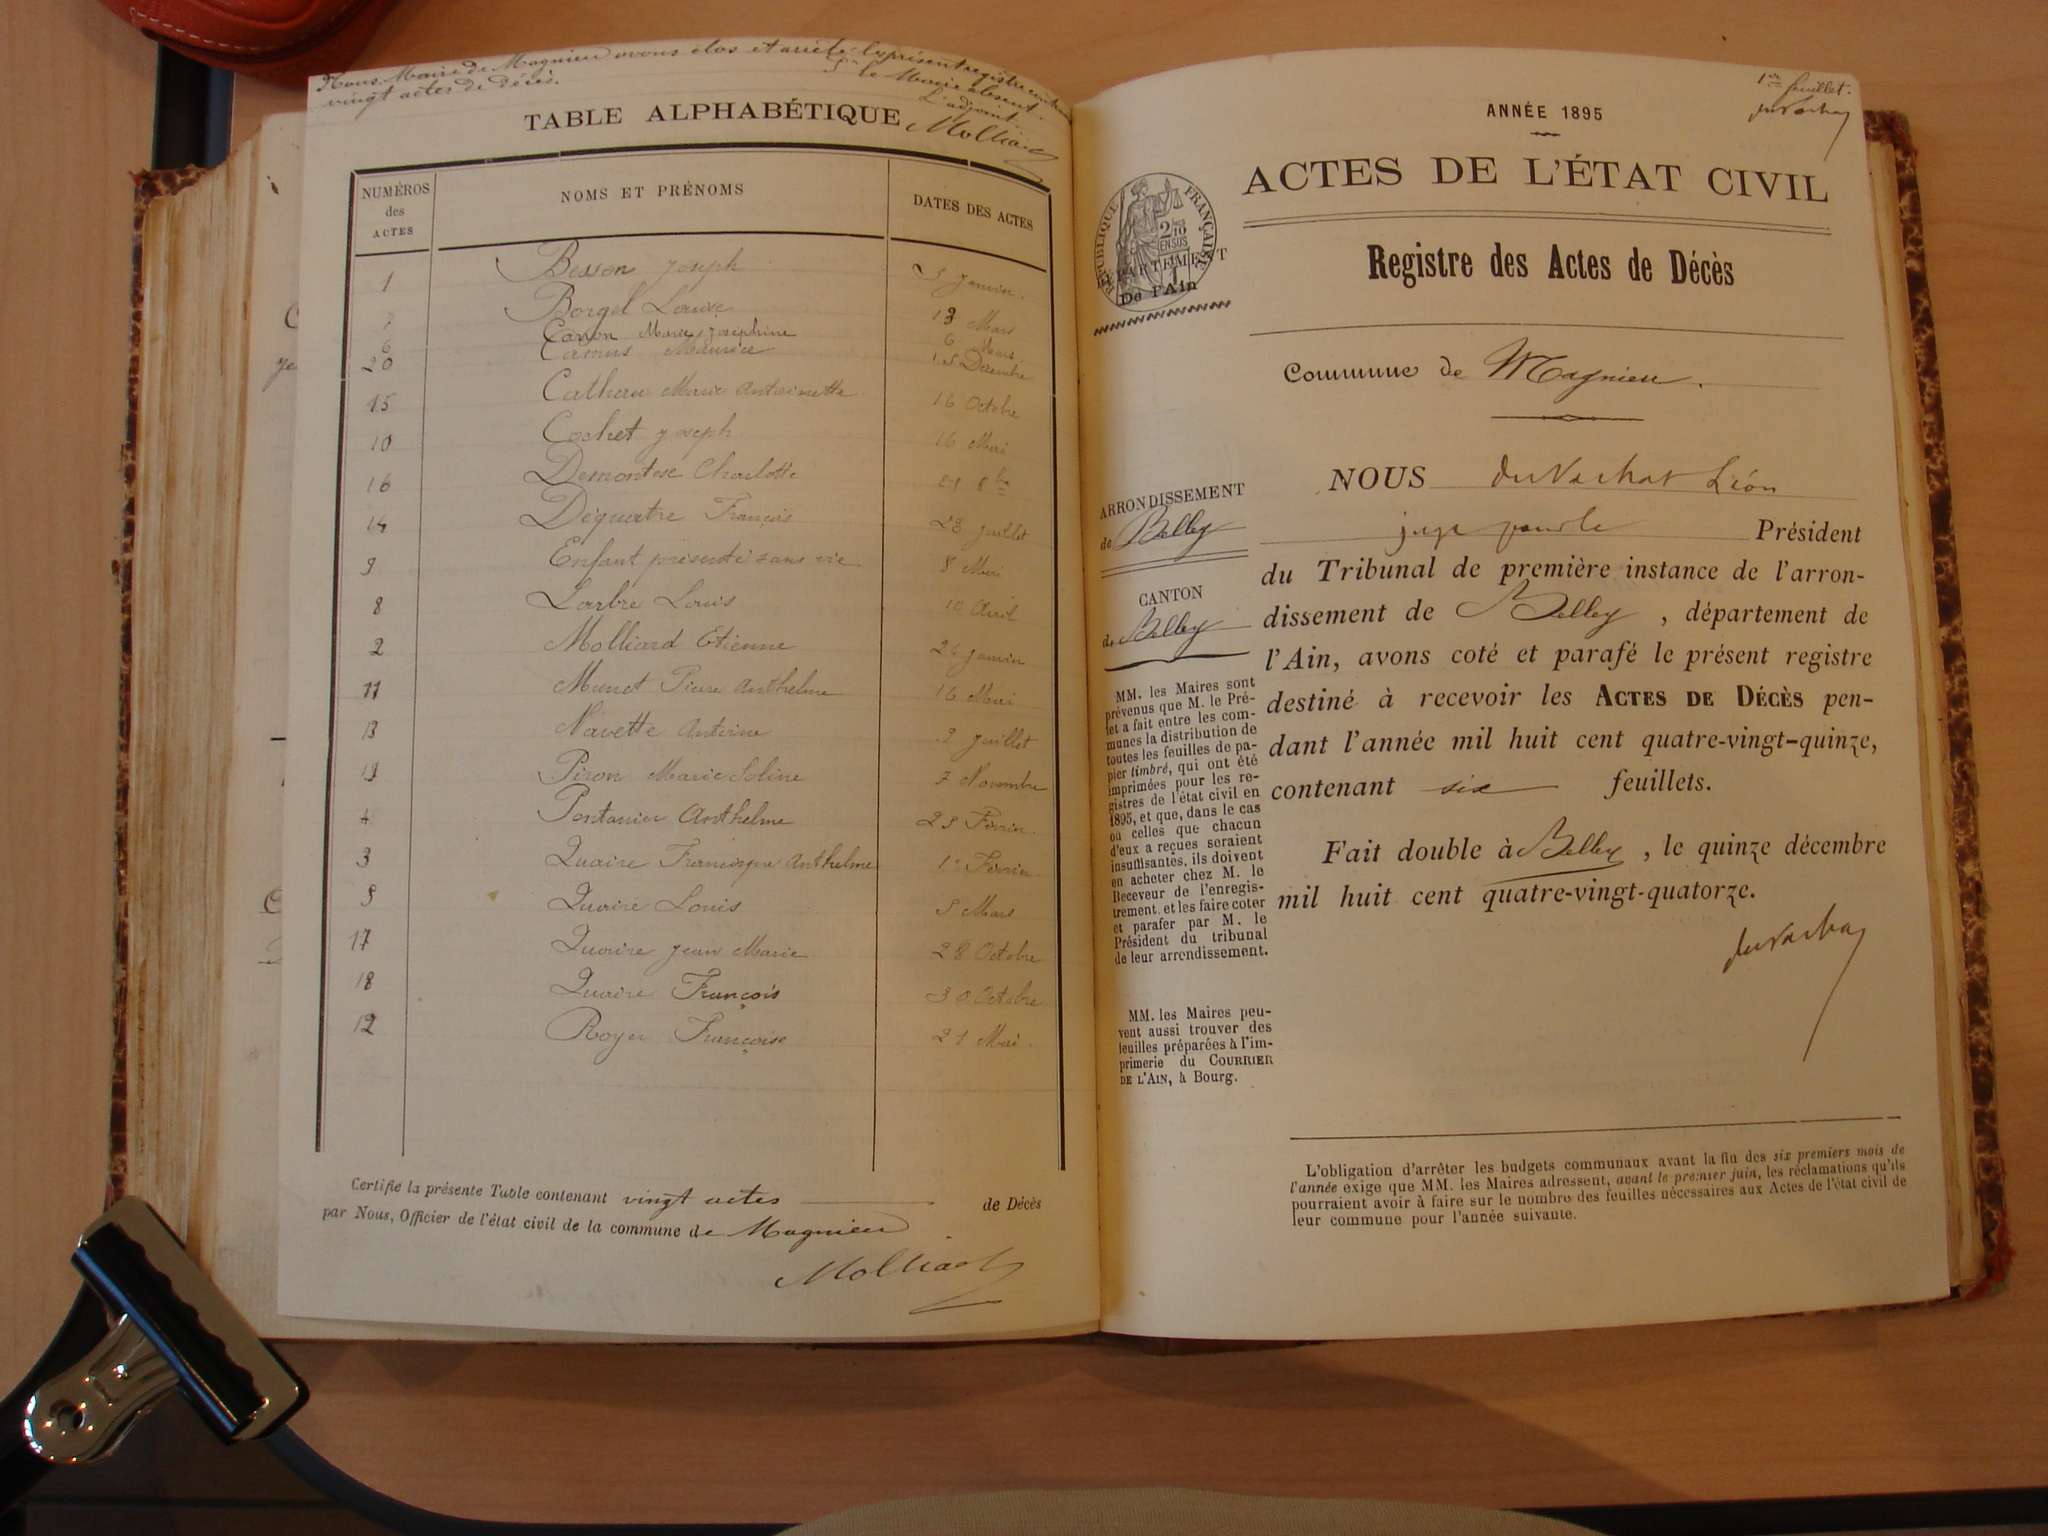 Nous Maire de Magnieu avons clos et arrêté le présent registre
vingt actes de décès.
le Maire absent
L'adjoint
Molliard
TABLE ALPHABÉTIQUE
NUMÉROS des ACTES NOMS ET PRÉNOMS DATES DES ACTES
1 Besson Joseph 5 Janvier
7 Borgel Louise 13 Mars
6 Carron Marie Joséphine 6 Mars
20 Camus Maurice 15 Décembre
15 Cathern Marie Antoinette 16 Octobre
10 Cochet Joseph 16 Mai
16 Demontese Charlotte 8bre
14 Dequatre François 28 Juillet
9 Enfant présenté sans vie 8 Mai
8 Larbre Louis 10 Avril
2 Molliard Etienne 24 Janvier
11 Munet Pierre Anthelme 16 Mai
13 Navette Antoine 9 Juillet
19 Piron Marie 7 Novembre
4 Pontanier Anthelme 25 Février
3 Quaire Anthelme 1er Février
5 Quaire Louis 5 Mars
17 Quaire Jean Marie 28 Octobre
18 Quaire François 30 Octobre
12 Royer Françoise 21 Mai
Certifie la présente Table contenant vingt actes de Décès
par Nous, Officier de l'état civil de la commune de Magnieu
Molliard
1er feuillet.
duVachat
ANNÉE 1895
ACTES DE L'ÉTAT CIVIL
RÉPUBLIQUE FRANÇAISE
2/10 EN SUS
DÉPARTEMENT
De l'Ain
Registre des Actes de Décès
Commune de Magnieu.
ARRONDISSEMENT
de Belley
CANTON
de Belley
MM. les Maires sont
prévenus que M. le Pré-
fet a fait entre les com-
munes la distribution de
toutes les feuilles de pa-
pier timbré, qui ont été
imprimées pour les re-
gistres de l'état civil en
1895, et que, dans le cas
où celles que chacun
d'eux a reçues seraient
insuffisantes, ils doivent
en acheter chez M. le
Receveur de l'enregis-
trement, et les faire coter
et parafer par M. le
Président du tribunal
de leur arrondissement.
MM. les Maires peu-
vent aussi trouver des
feuilles préparées à l'im-
primerie du COURRIER
DE L'AIN, à Bourg.
NOUS duVachat Léon
juge pour le Président
du Tribunal de première instance de l'arron-
dissement de Belley , département de
l'Ain, avons coté et parafé le présent registre
destiné à recevoir les ACTES DE DÉCÈS pen-
dant l'année mil huit cent quatre-vingt-quinze,
contenant six feuillets.
Fait double à Belley , le quinze décembre
mil huit cent quatre-vingt-quatorze.
duVachat
L'obligation d'arrêter les budgets communaux avant la fin des six premiers mois de
l'année exige que MM. les Maires adressent, avant le premier juin, les réclamations qu'ils
pourraient avoir à faire sur le nombre des feuilles nécessaires aux Actes de l'état civil de
leur commune pour l'année suivante.